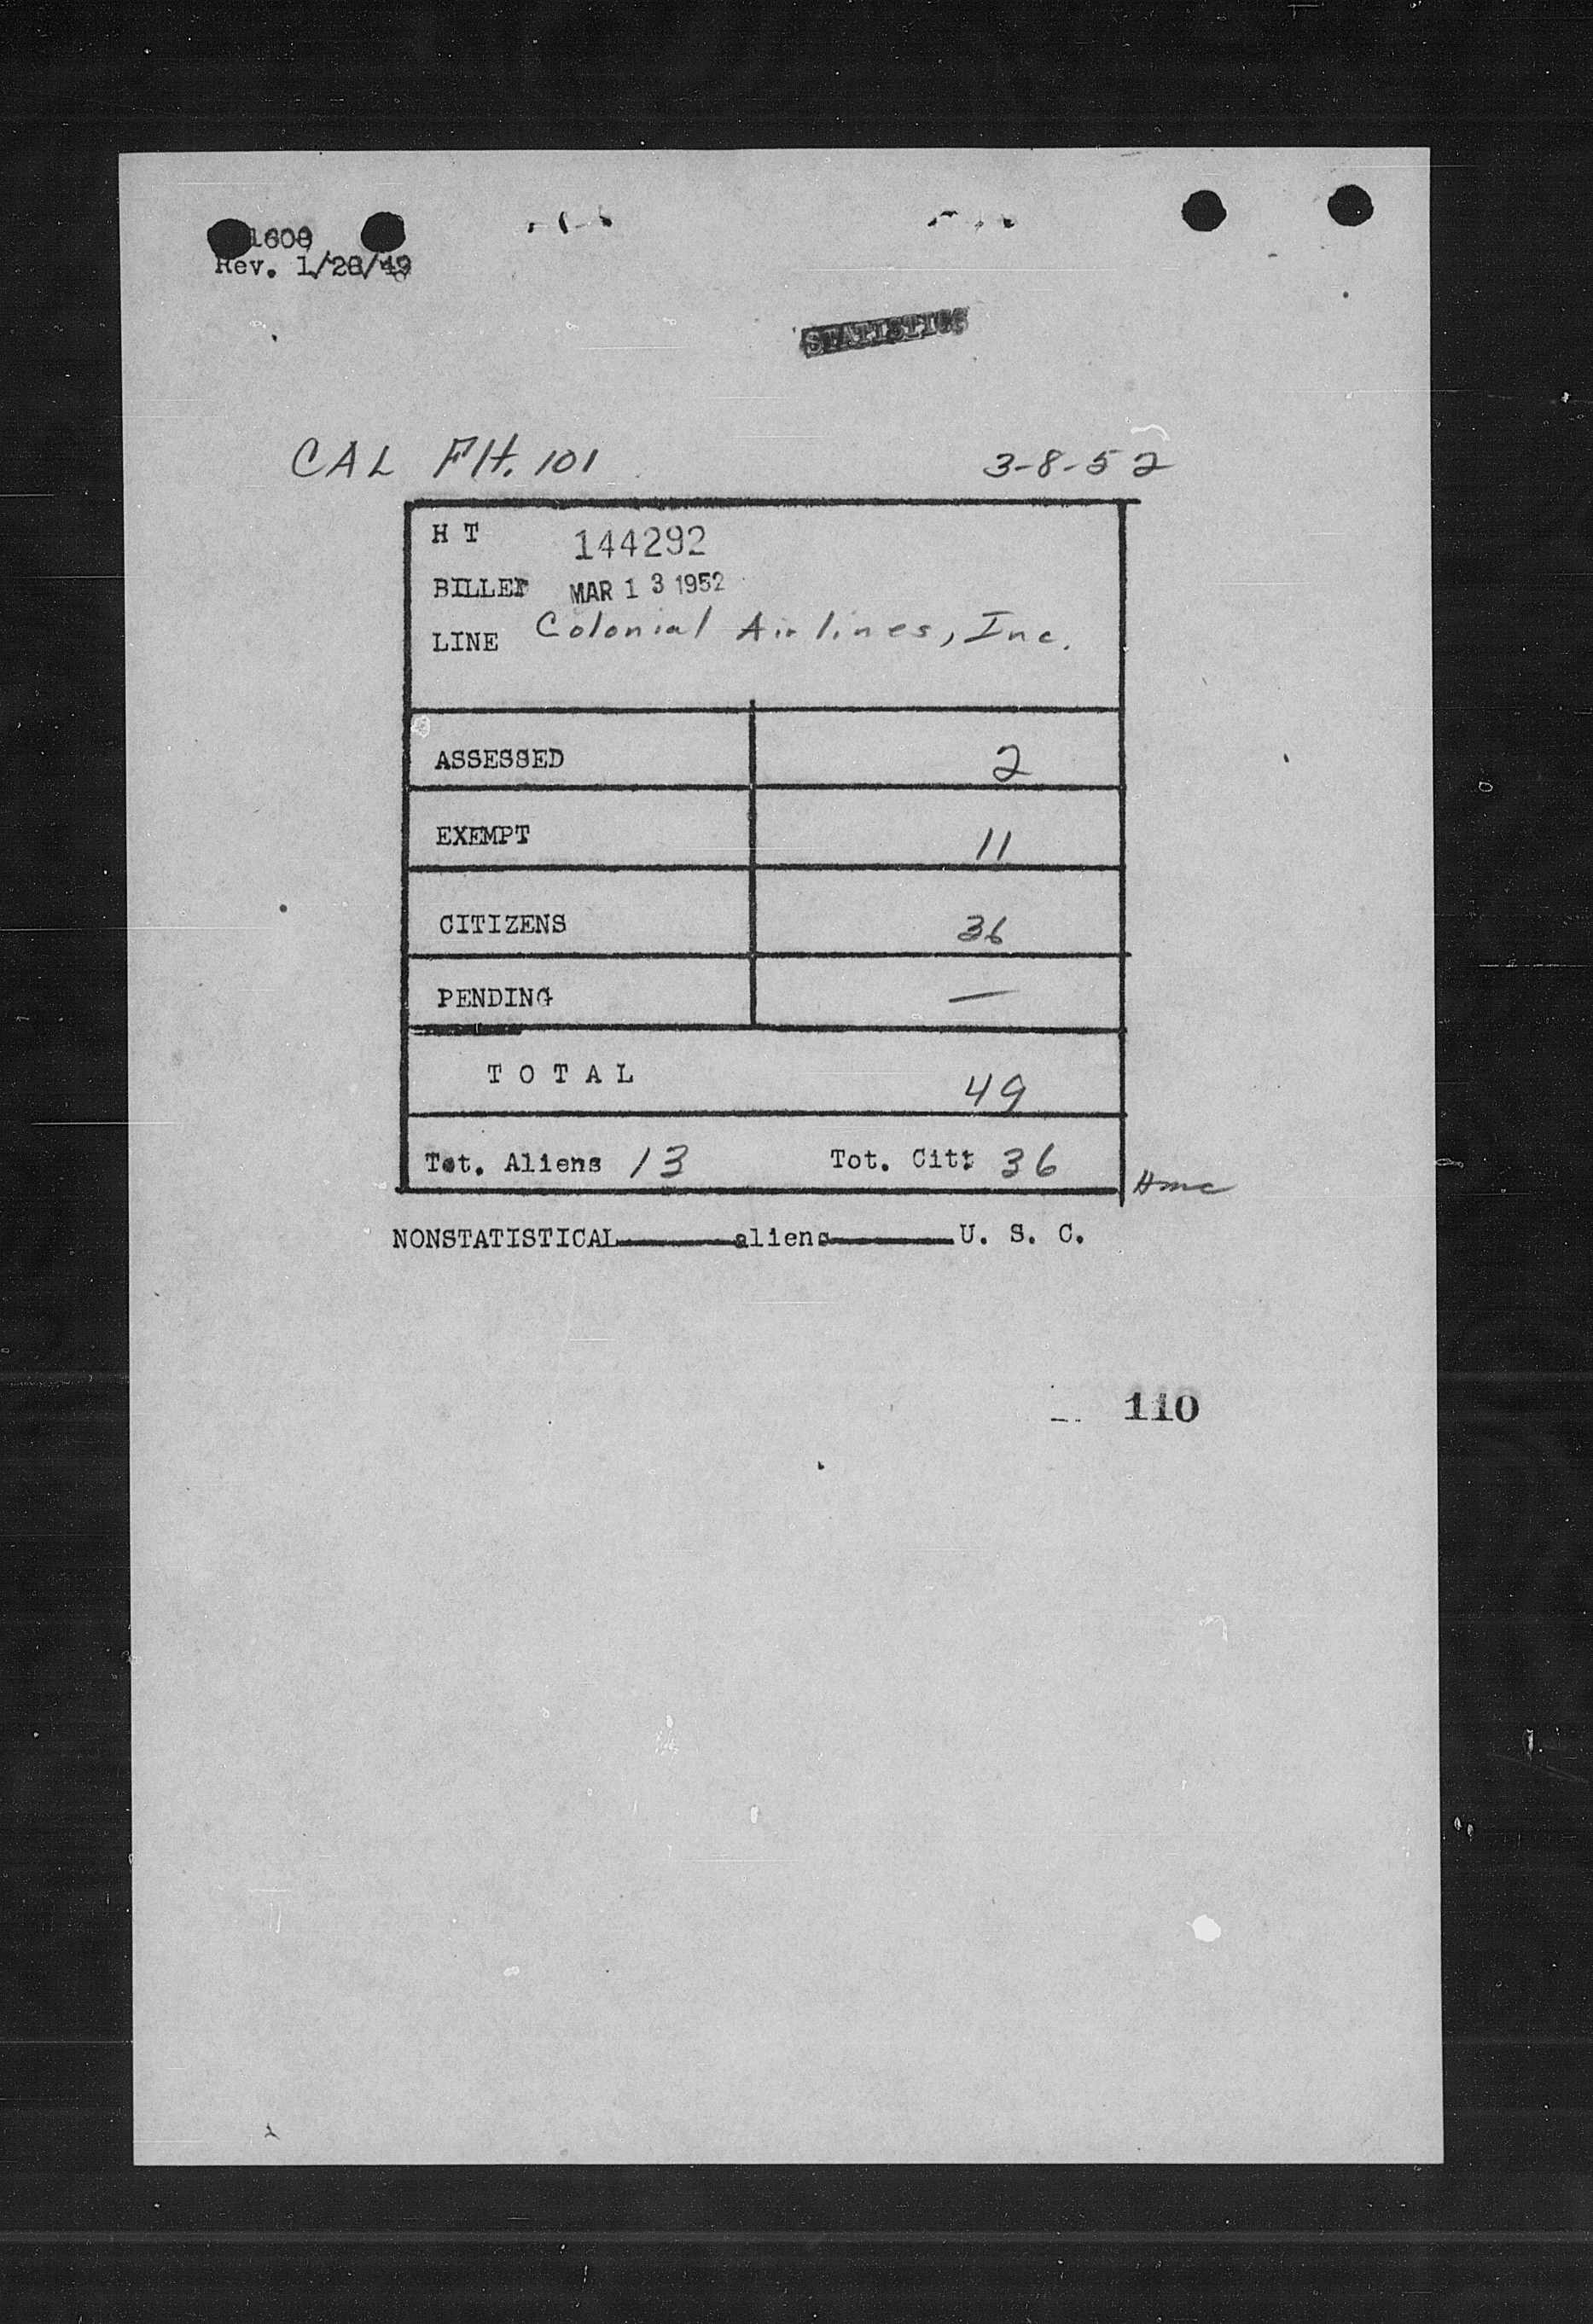 1608
Rev. 1/28/49
STATISTICS
CAL Flt. 101 3-8-52
H T 144292
BILLED MAR 13 1952
LINE Colonial Airlines, Inc.
ASSESSED 2
EXEMPT 11
CITIZENS 36
PENDING —
T O T A L 49
Tot. Aliens 13 Tot. Cit: 36
NONSTATISTICAL______aliens______U. S. C.
110